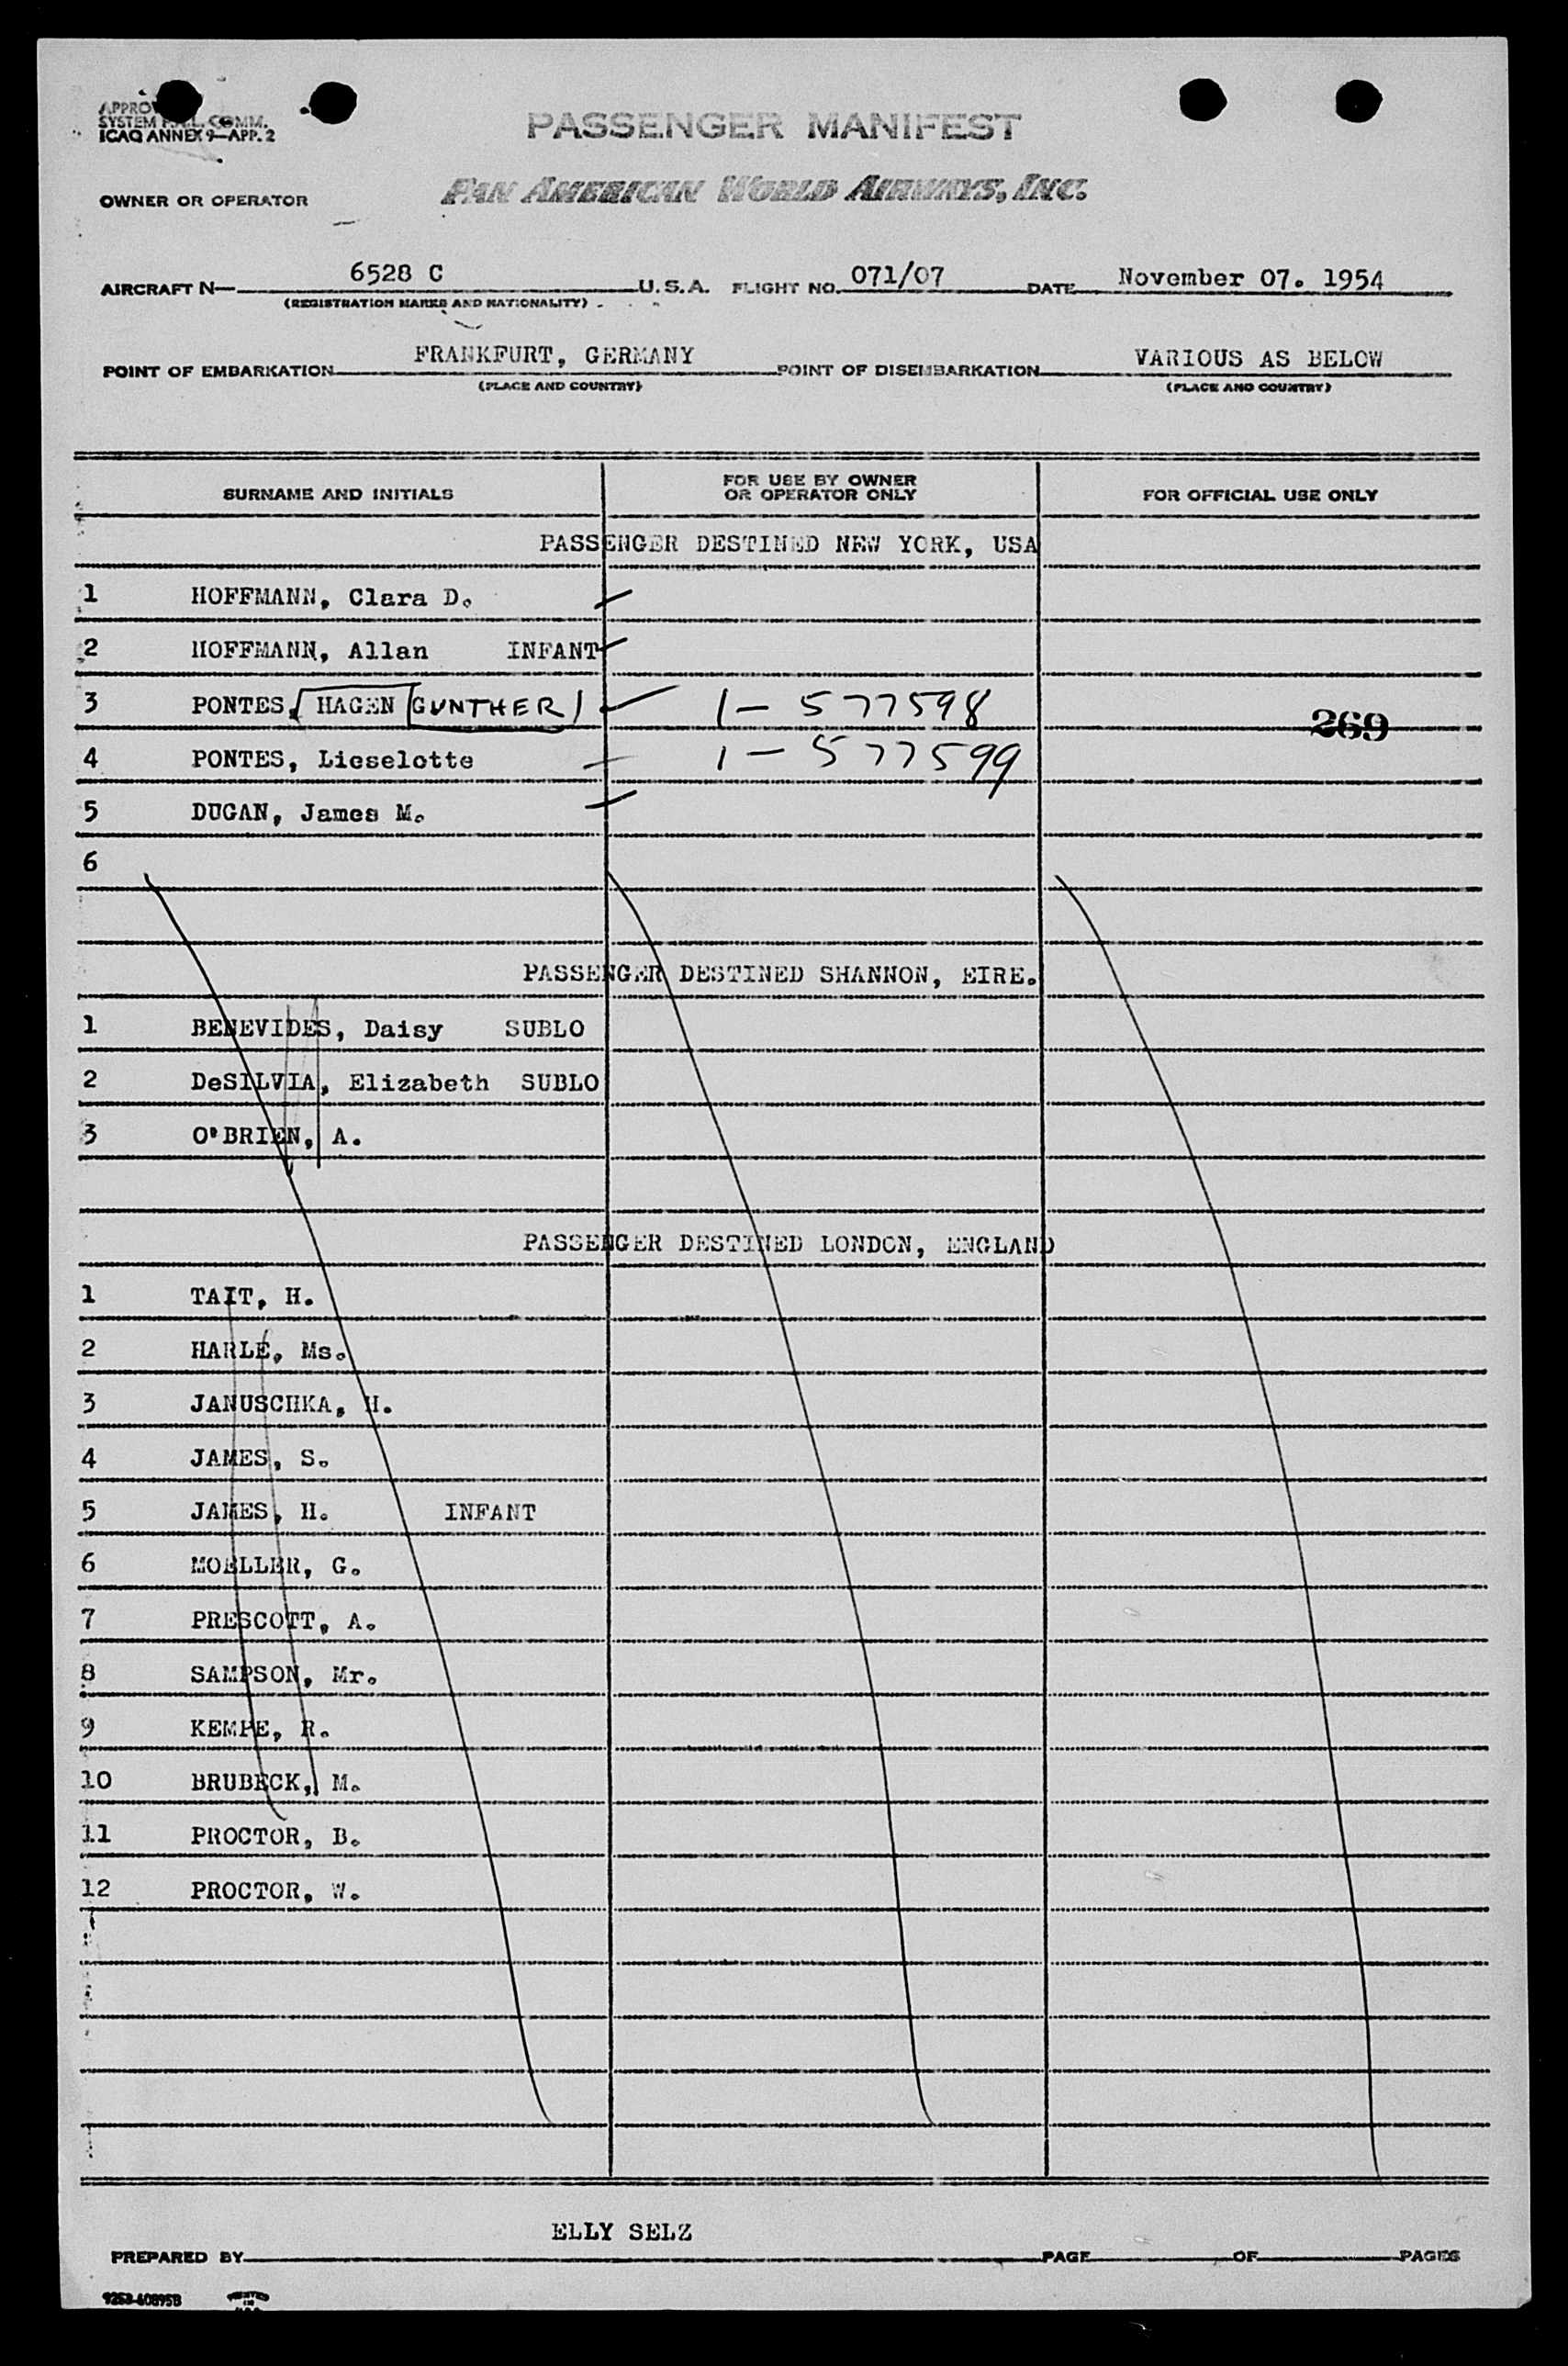 APPRO
SYSTEM F.A.L. COMM.
ICAO ANNEX 9—APP. 2
PASSENGER MANIFEST
OWNER OR OPERATOR PAN AMERICAN WORLD AIRWAYS, INC.
AIRCRAFT N— 6528 C U.S.A. FLIGHT NO. 071/07 DATE November 07. 1954
(REGISTRATION MARKS AND NATIONALITY)
POINT OF EMBARKATION FRANKFURT, GERMANY POINT OF DISEMBARKATION VARIOUS AS BELOW
(PLACE AND COUNTRY) (PLACE AND COUNTRY)
SURNAME AND INITIALS FOR USE BY OWNER OR OPERATOR ONLY FOR OFFICIAL USE ONLY
PASSENGER DESTINED NEW YORK, USA
1 HOFFMANN, Clara D.
2 HOFFMANN, Allan INFANT
3 PONTES, HAGEN GUNTHER 1-577598 269
4 PONTES, Lieselotte 1-577599
5 DUGAN, James M.
6
PASSENGER DESTINED SHANNON, EIRE.
1 BENEVIDES, Daisy SUBLO
2 DeSILVIA, Elizabeth SUBLO
3 O'BRIEN, A.
PASSENGER DESTINED LONDON, ENGLAND
1 TAIT, H.
2 HARLE, Ms.
3 JANUSCHKA, H.
4 JAMES, S.
5 JAMES, H. INFANT
6 MOELLER, G.
7 PRESCOTT, A.
8 SAMPSON, Mr.
9 KEMPE, R.
10 BRUBECK, M.
11 PROCTOR, B.
12 PROCTOR, W.
PREPARED BY ELLY SELZ PAGE OF PAGES
9253-60895B PRINTED IN